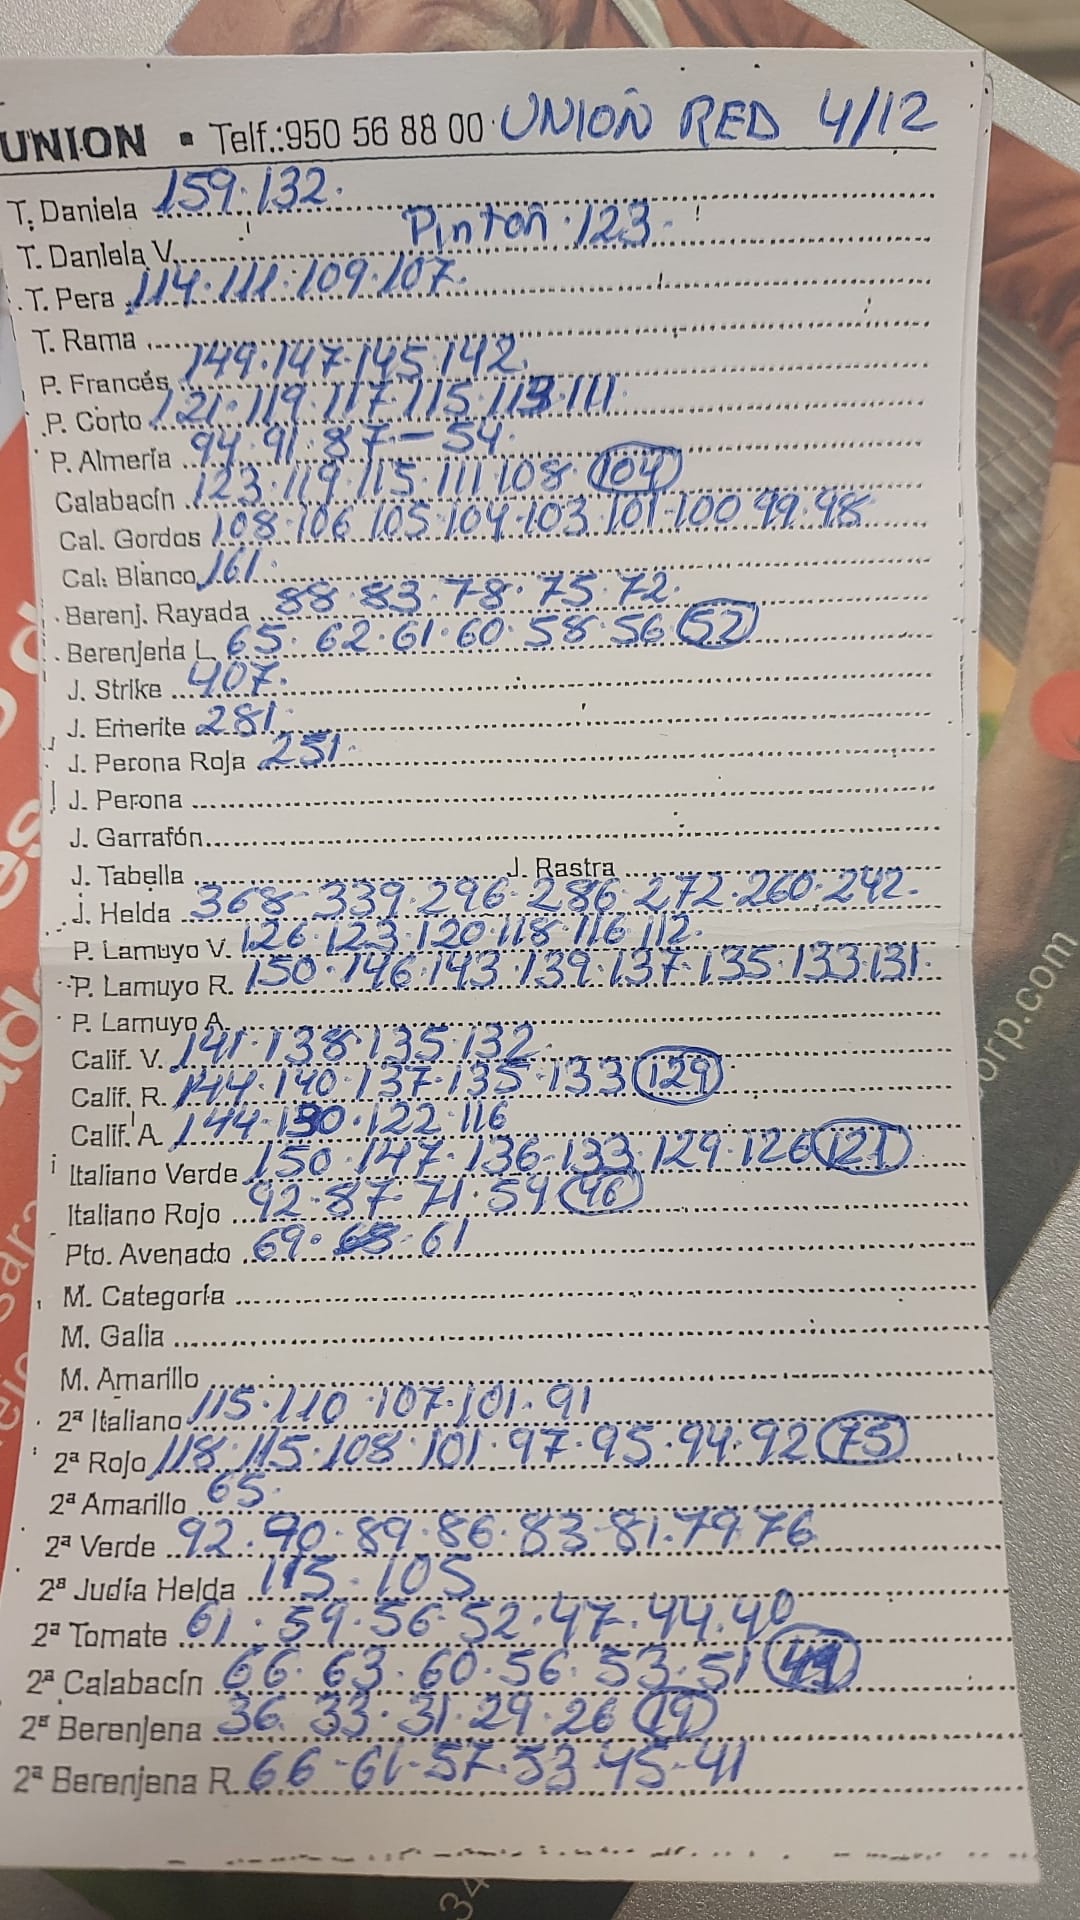 UNION ▪ Telf.:950 56 88 00 UNION RED 4/12
T. Daniela 159.132.
T. Daniela V. Pinton.123.
T. Pera 114.111.109.107.
T. Rama
P. Francés 149.147.145.142.
P. Corto 121.119.117.115.113.111
P. Almería 94.91.87-54.
Calabacín 123.119.115.111.108.104
Cal. Gordos 108.106.105.104.103.101.100.99.98
Cal. Blanco 161.
Berenj. Rayada 88.83.78.75.72.
Berenjena L 65.62.61.60.58.56 52
J. Strike 407.
J. Emerite 281.
J. Perona Roja 251.
J. Perona
J. Garrafón
J. Tabella J. Rastra
J. Helda 368.339.296.286.272.260.242.
P. Lamuyo V. 126.123.120.118.116.112.
P. Lamuyo R. 150.146.143.139.137.135.133.131.
P. Lamuyo A.
Calif. V. 141.138.135.132.
Calif. R. 144.140.137.135.133 129
Calif. A 144.130.122.116
Italiano Verde 150.147.136.133.129.126 121
Italiano Rojo 92.87.71.59 46
Pto. Avenado 69. 61
M. Categoría
M. Galia
M. Amarillo
2ª Italiano 115.110.107.101.91
2ª Rojo 118.115.108.101.97.95.94.92 75
2ª Amarillo 65.
2ª Verde 92.90.89.86.83.81.79.76
2ª Judía Helda 115.105
2ª Tomate 61.59.56.52.47.44.40
2ª Calabacín 66.63.60.56.53.51
2ª Berenjena 36.33.31.29.26 19
2ª Berenjena R. 66.61.57.53.45.41
orp.com
34